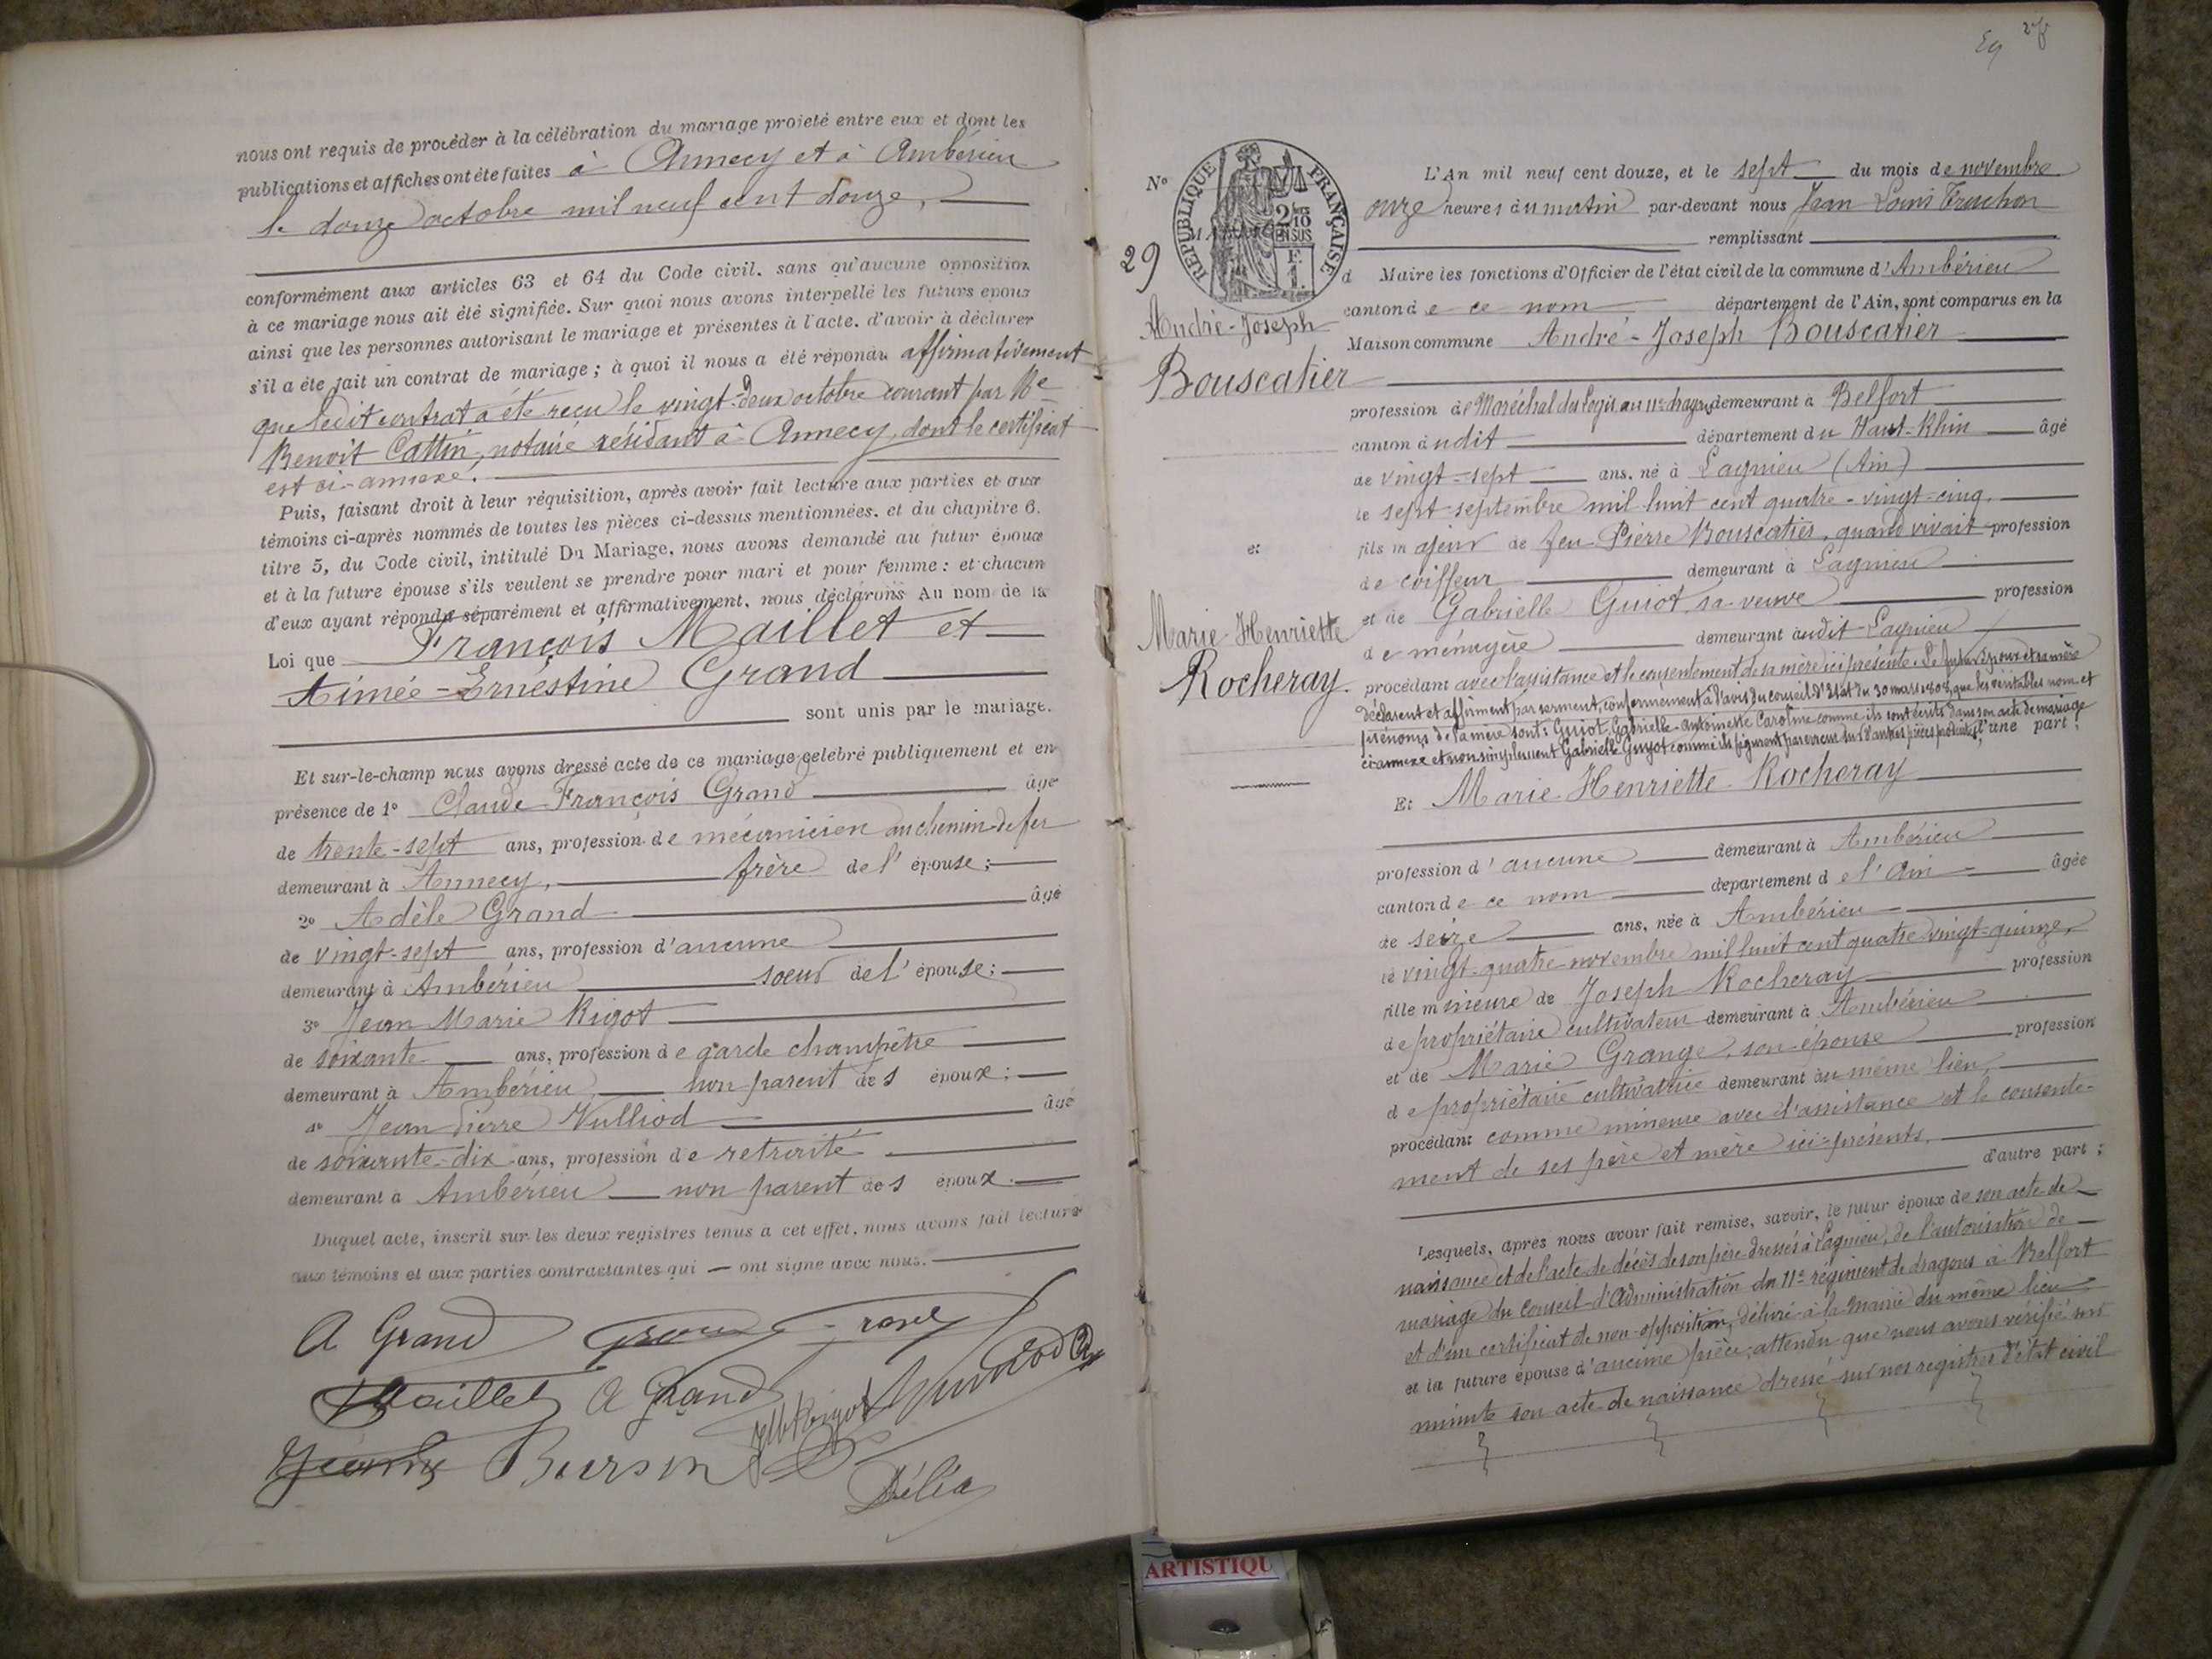 nous ont requis de procéder à la célébration du mariage projeté entre eux et dont les
publications et affiches ont été faites à Annecy et à Ambérieu
le douze octobre mil neuf cent douze,
conformément aux articles 63 et 64 du Code civil. sans qu'aucune opposition
à ce mariage nous ait été signifiée. Sur quoi nous avons interpellé les futurs époux
ainsi que les personnes autorisant le mariage et présentes à l'acte. d'avoir à déclarer
s'il a été fait un contrat de mariage ; à quoi il nous a été répondu affirmativement
que ledit contrat a été reçu le vingt-deux octobre courant par Me
Benoit Cattin, notaire résidant à Annecy, dont le certificat
est ci-annexé.
Puis, faisant droit à leur réquisition, après avoir fait lecture aux parties et aux
témoins ci-après nommés de toutes les pièces ci-dessus mentionnées. et du chapitre 6.
titre 5, du Code civil, intitulé Du Mariage, nous avons demandé au futur époux
et à la future épouse s'ils veulent se prendre pour mari et pour femme : et chacun
d'eux ayant répondu séparément et affirmativement, nous déclarons Au nom de la
Loi que François Maillet et
Aimée-Ernestine Grand
sont unis par le mariage.
Et sur-le-champ nous avons dressé acte de ce mariage célébré publiquement et en
présence de 1° Claude François Grand âgé
de trente-sept ans, profession de mécanicien au chemin de fer
demeurant à Annecy, frère de l'épouse ;
2° Adèle Grand âgé
de vingt-sept ans, profession d'aucune
demeurant à Ambérieu soeur de l'épouse ;
3° Jean Marie Rigot
de soixante ans, profession de garde champêtre
demeurant à Ambérieu, non parent des époux ;
4° Jean Pierre Vulliod âgé
de soixante-dix ans, profession de retraité
demeurant à Ambérieu non parent des époux.
Duquel acte, inscrit sur les deux registres tenus à cet effet, nous avons fait lecture
aux témoins et aux parties contractantes qui ont signé avec nous.
A Grand
Maillet A Grand
Bursin
Délia
27
N°
REPUBLIQUE FRANÇAISE
2/10 EN SUS
F. 1.
29
André-Joseph
Bouscatier
et
Marie Henriette
Rocheray.
L'An mil neuf cent douze, et le sept du mois de novembre
onze heures du matin par-devant nous Jean Louis Truchon
remplissant
d Maire les fonctions d'Officier de l'état civil de la commune d'Ambérieu
canton de ce nom département de l'Ain, sont comparus en la
Maison commune André-Joseph Bouscatier
profession de Maréchal des logis au 11e dragons demeurant à Belfort
canton dudit département du Haut-Rhin âgé
de vingt-sept ans, né à Lagnieu (Ain)
le sept septembre mil huit cent quatre-vingt-cinq,
fils majeur de feu Pierre Bouscatier, quand vivait profession
de coiffeur demeurant à Lagnieu
et de Gabrielle Guiot, sa veuve profession
de ménagère demeurant audit Lagnieu
procédant avec l'assistance et le consentement de sa mère ici présente. Le futur époux et sa mère
déclarent et affirment par serment, conformément à l'avis du conseil d'Etat du 30 mars 1808, que les véritables nom et
prénoms de la mère sont : Guiot Gabrielle-Antoinette Caroline comme ils sont écrits dans son acte de mariage
ci-annexé et non simplement Gabrielle Guyot comme ils figurent par erreur sur d'autres pièces produites, d'une part ;
Et Marie-Henriette Rocheray
profession d'aucune demeurant à Ambérieu
canton de ce nom département de l'Ain âgée
de seize ans, née à Ambérieu
le vingt-quatre novembre mil huit cent quatre-vingt-quinze,
fille mineure de Joseph Rocheray profession
de propriétaire cultivateur demeurant à Ambérieu
et de Marie Grange, son épouse profession
de propriétaire cultivatrice demeurant au même lieu,
procédant comme mineure avec l'assistance et le consente-
ment de ses père et mère ici-présents,
d'autre part ;
Lesquels, après nous avoir fait remise, savoir, le futur époux de son acte de
naissance et de l'acte de décès de son père dressés à Lagnieu, de l'autorisation de
mariage du Conseil d'Administration du 11e régiment de dragons à Belfort
et d'un certificat de non-opposition, délivré à la Mairie du même lieu
et la future épouse d'aucune pièce, attendu que nous avons vérifié sur
minute son acte de naissance dressé sur nos registres d'état civil
ARTISTIQU